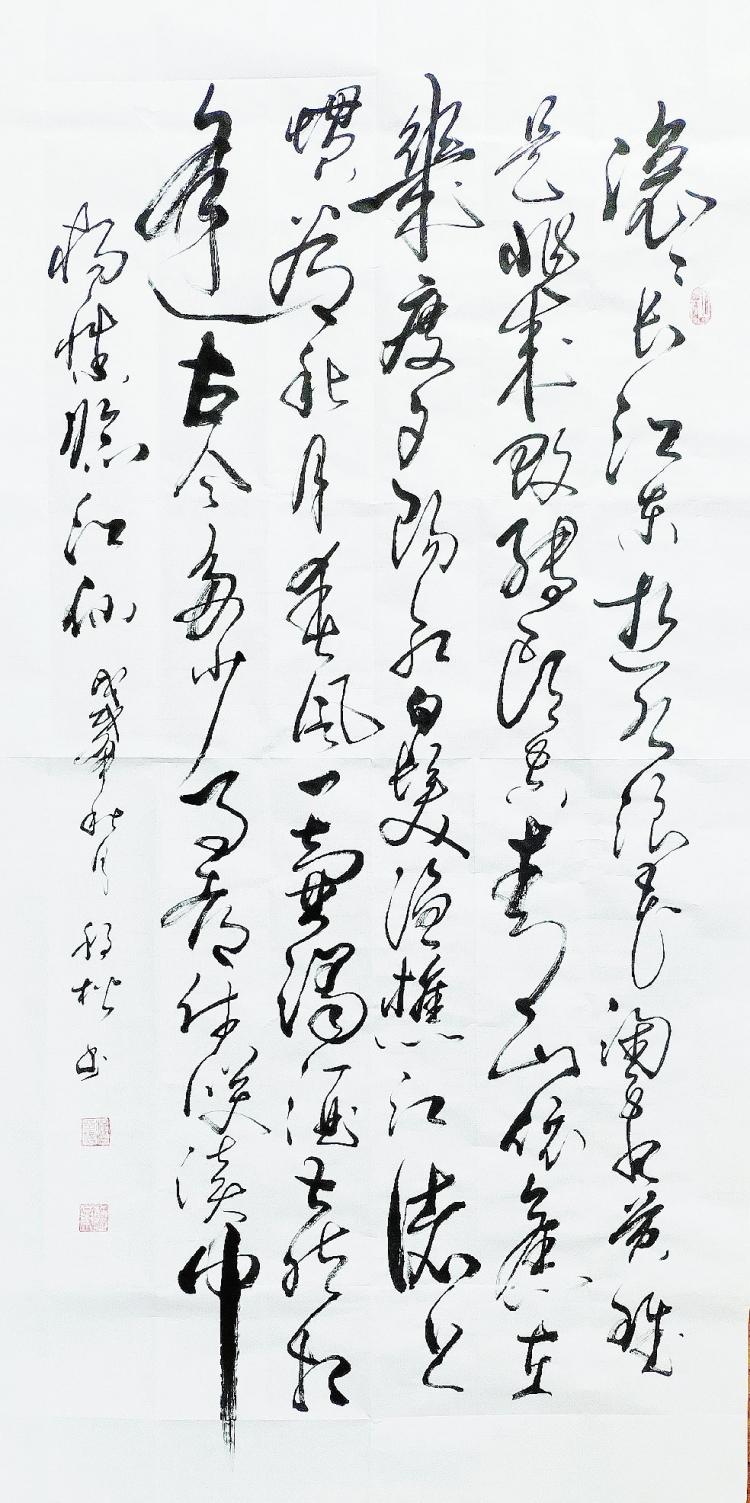 滚〻长江东逝水浪花淘尽英雄
是非成败转头空青山依舊在
幾度夕阳红白髮渔樵江渚上
惯看秋月春风一壶濁酒喜相
逢古今多少事都付笑谈中
杨慎临江仙 秋月 楷书